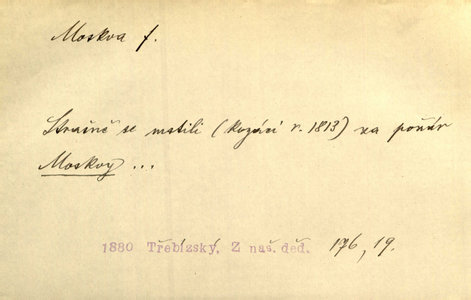 Moskva f.
Strašně se mstili (kozáci r. 1813) za požár
Moskvy ...
1880 Třebízský, Z naš. děd. 176, 19.